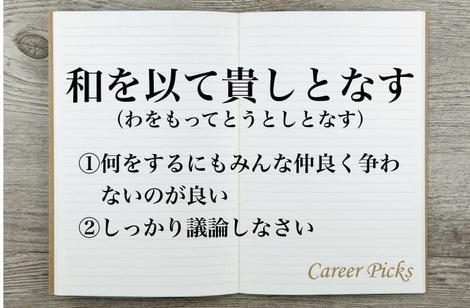 和を以て貴しとなす
（わをもってとうとしとなす）
①何をするにもみんな仲良く争わ
ないのが良い
②しっかり議論しなさい
Career Picks